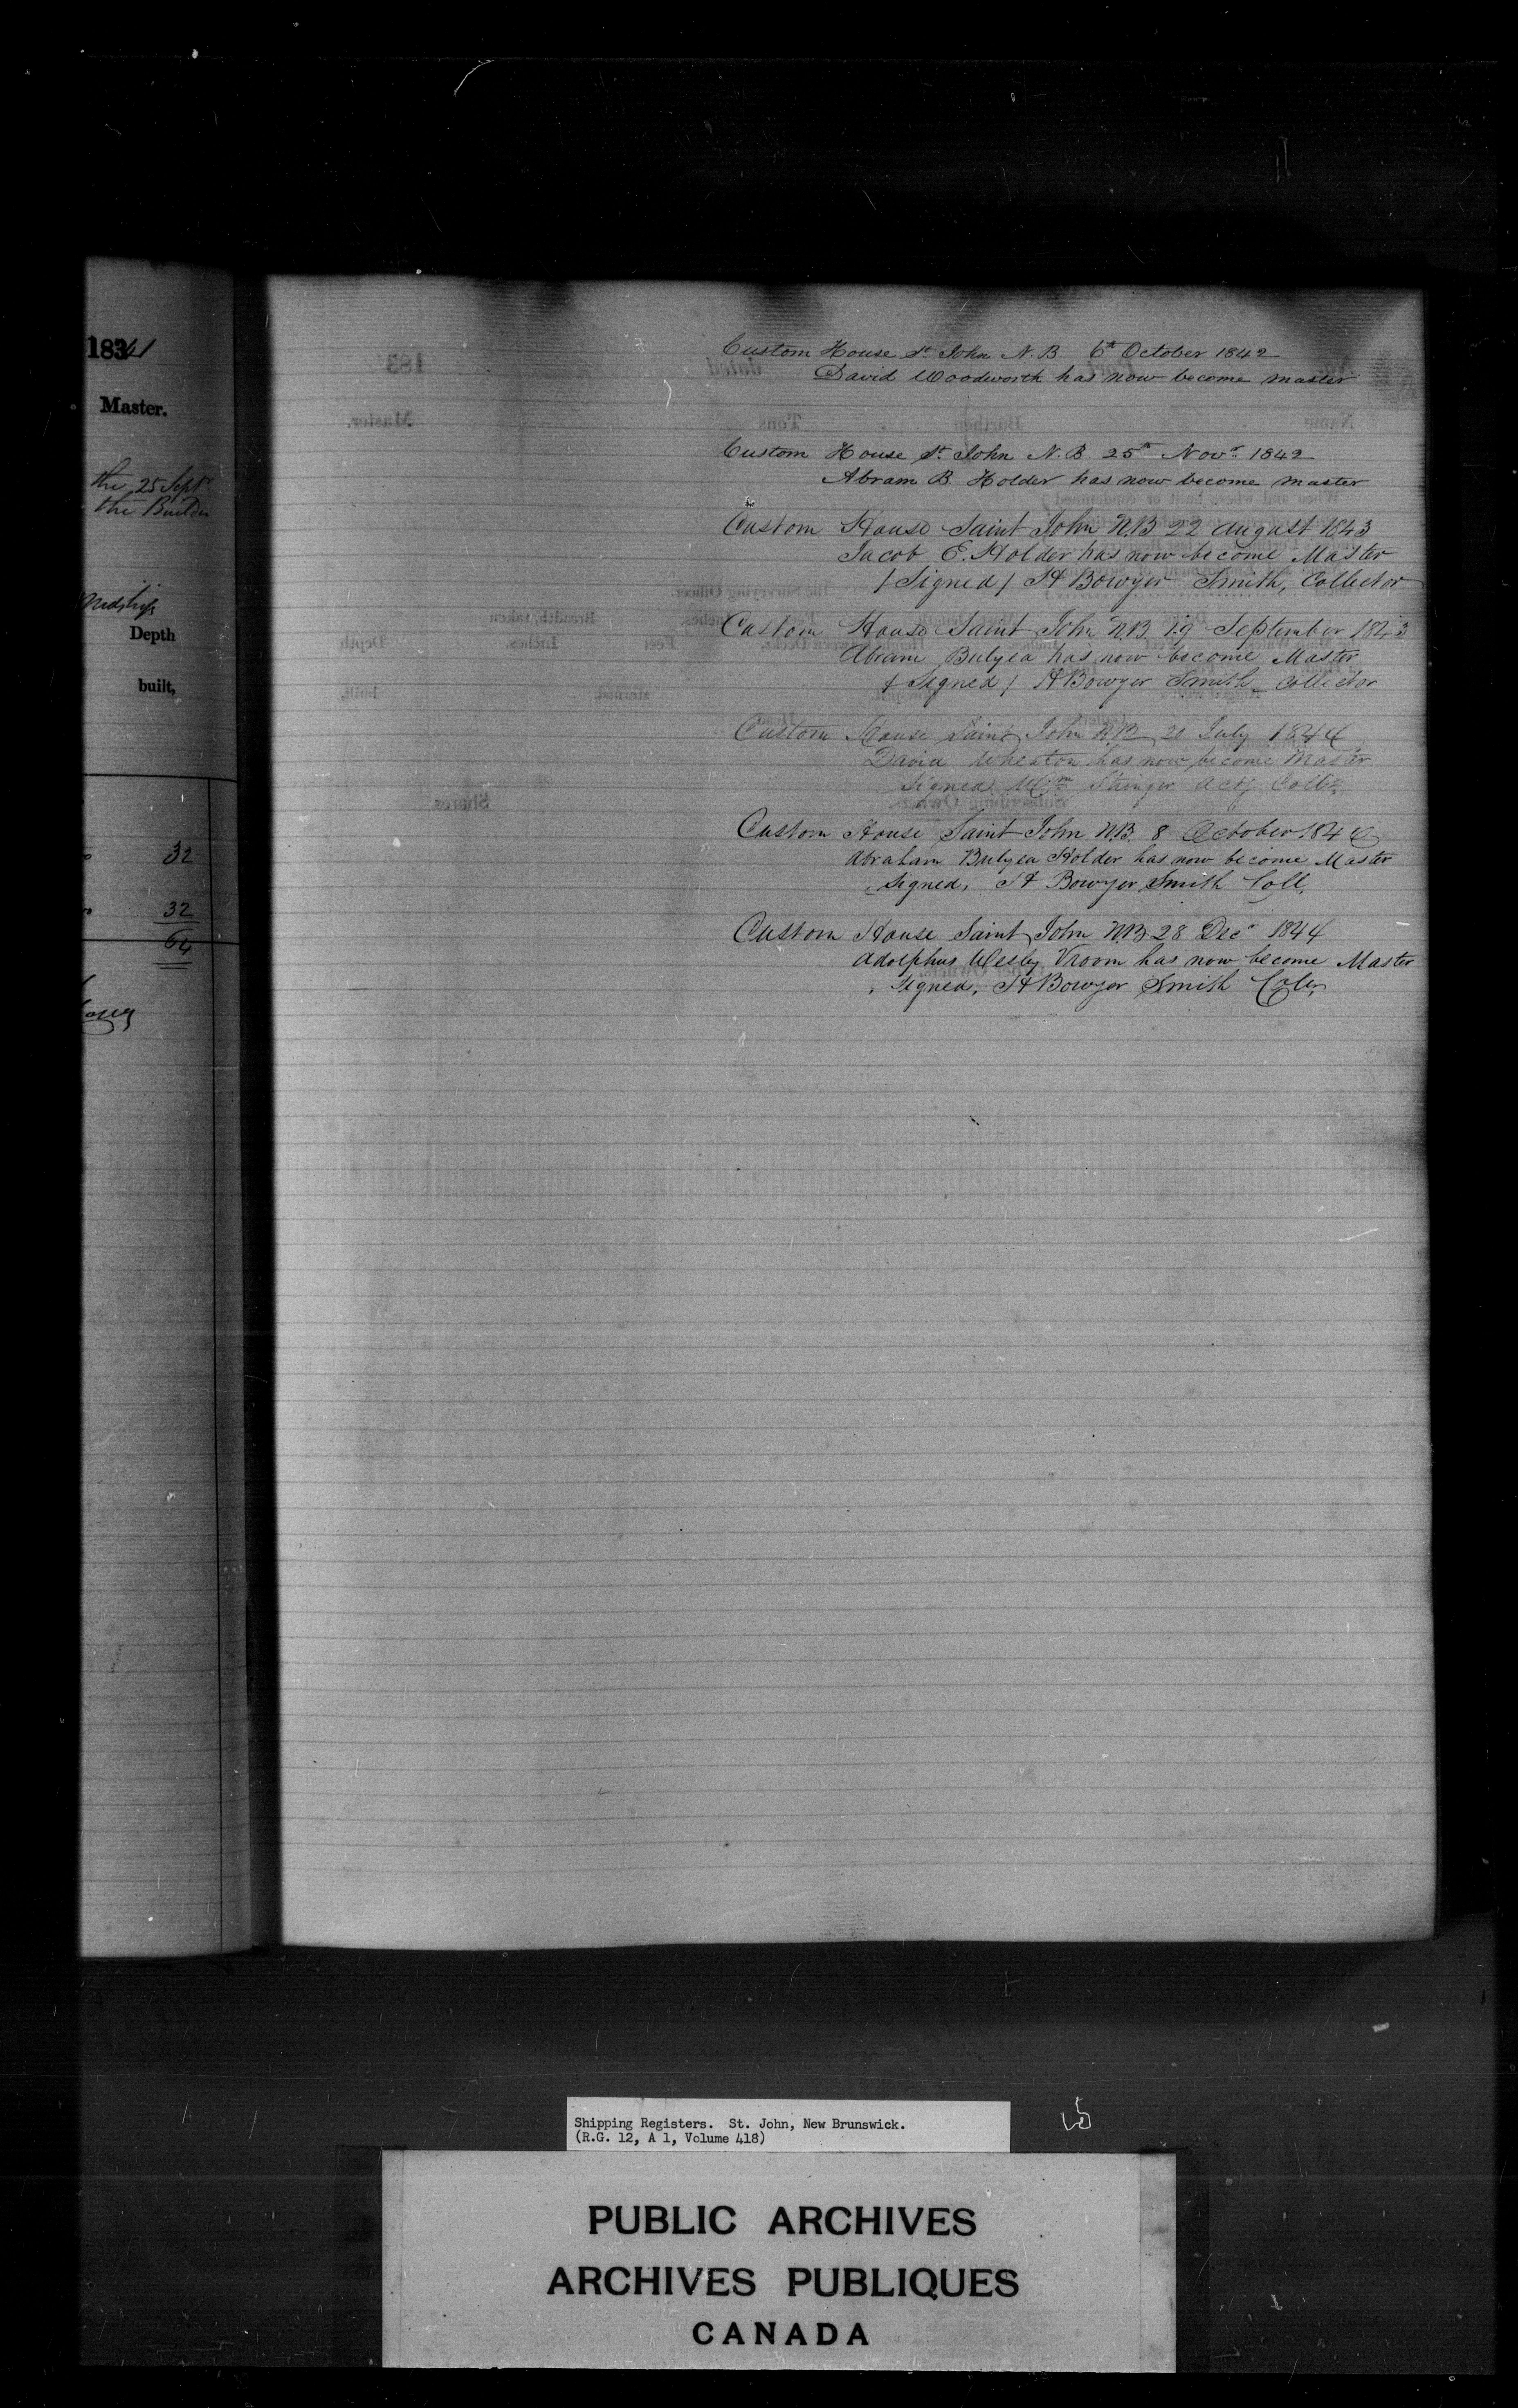 1841
Master.
the 25 Sept.
the Builder
Midships
Depth
built,
32
32
64
Custom House St. John N.B 6th October 1842
David Woodworth has now become master
Custom House St. John N.B 25th Novr. 1842
Abram B. Holder has now become master
Custom House Saint John N.B 22 August 1843
Jacob E. Holder has now become Master
/ Signed / H Bowyer Smith, Collector
Custom House Saint John N.B 19 September 1843
Abram Bulyea has now become Master
/ Signed / H Bowyer Smith Collector
Custom House Saint John N.B 20 July 1844
David Wheaton has now become Master
Signed Wm Stringer Actg Collr.
Custom House Saint John N.B. 8 October 1844
Abraham Bulyea Holder has now become Master
Signed, H Bowyer Smith Coll.
Custom House Saint John N.B 28 Decr 1844
Adolphus Wesley Vroom has now become Master
Signed, H Bowyer Smith Collr
Shipping Registers. St. John, New Brunswick.
(R.G. 12, A 1, Volume 418)
PUBLIC ARCHIVES
ARCHIVES PUBLIQUES
CANADA